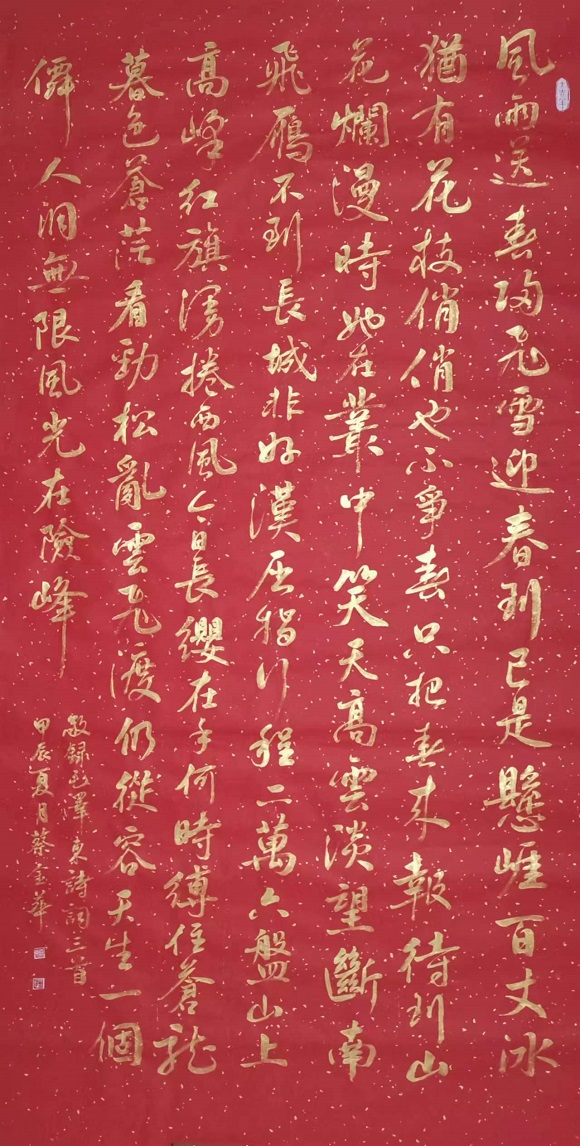 風雨送春歸飛雪迎春到已是懸崖百丈冰
猶有花枝俏俏也不爭春只把春來報待到山
花爛漫時她在叢中笑天高雲淡望斷南
飛雁不到長城非好漢屈指行程二萬六盤山上
高峰紅旗漫捲西風今日長纓在手何時縛住蒼龍
暮色蒼茫看勁松亂雲飛渡仍從容天生一個
僊人洞無限風光在險峰
敬録毛澤東詩詞三首
甲辰夏月蔡金華